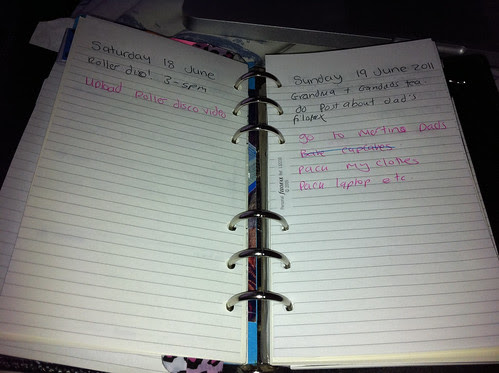 Saturday 18 June
Roller duo! 3-5pm
Upload Roller disco video
Sunday 19 June 2011
Grandma + Grandads tea
do Post about dad's
filofax
go to meeting Dads
Bake Cupcakes
Pack my clothes
Pack laptop etc
Personal